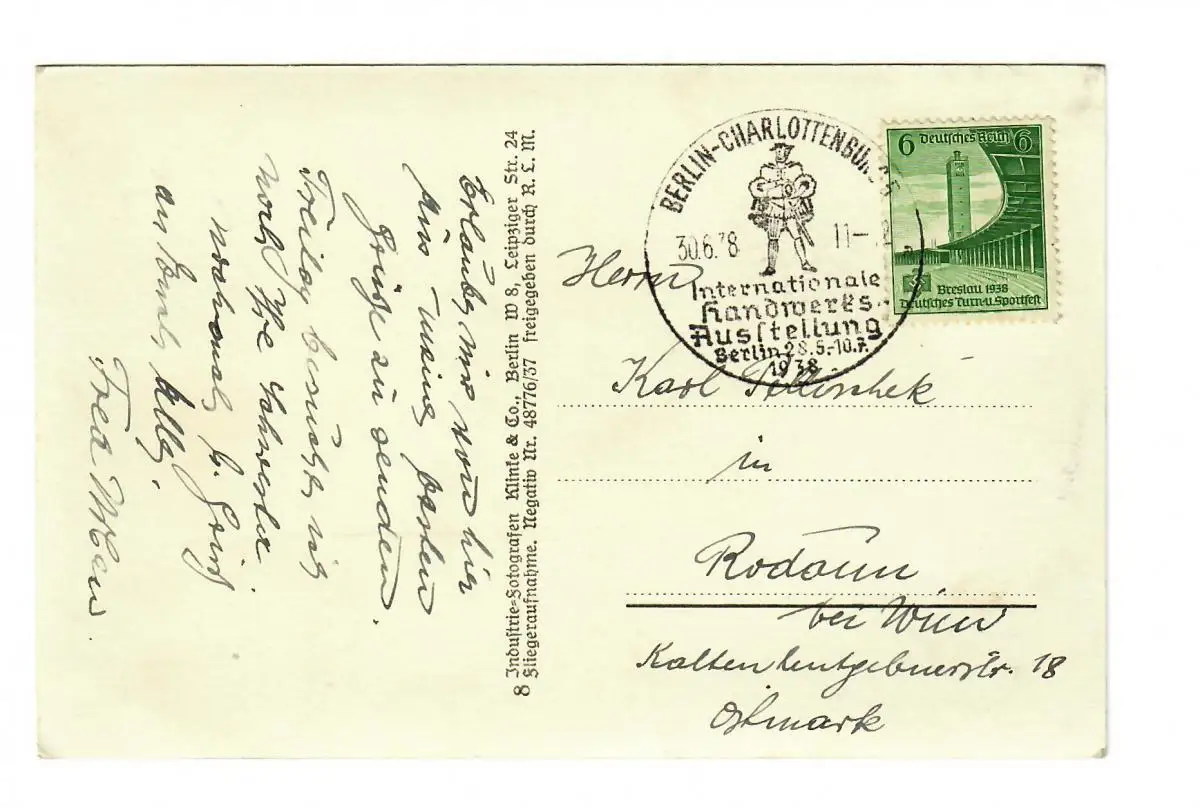 Erlaube mir von hier
aus meine besten
Grüße zu senden.
Freitag besuche ich
noch Ihre Schwester.
nochmals h. Gruß
an Euch Alle,
Industrie=Fotografen Klinke & Co., Berlin W 8, Leipziger Str. 24
8 Fliegeraufnahme. Negativ Nr. 48776/37 freigegeben durch R. L. M.
BERLIN-CHARLOTTENBURG
30.6.38 11-12
Internationale
Handwerks-
Ausstellung
Berlin 28.5.-10.7.
1938
6 Deutsches Reich 6
Breslau 1938
Deutsches Turn-u. Sportfest
Herrn
Karl
in
Rodaun
bei Wien
Kaltenleutgebnerstr. 18
Ostmark